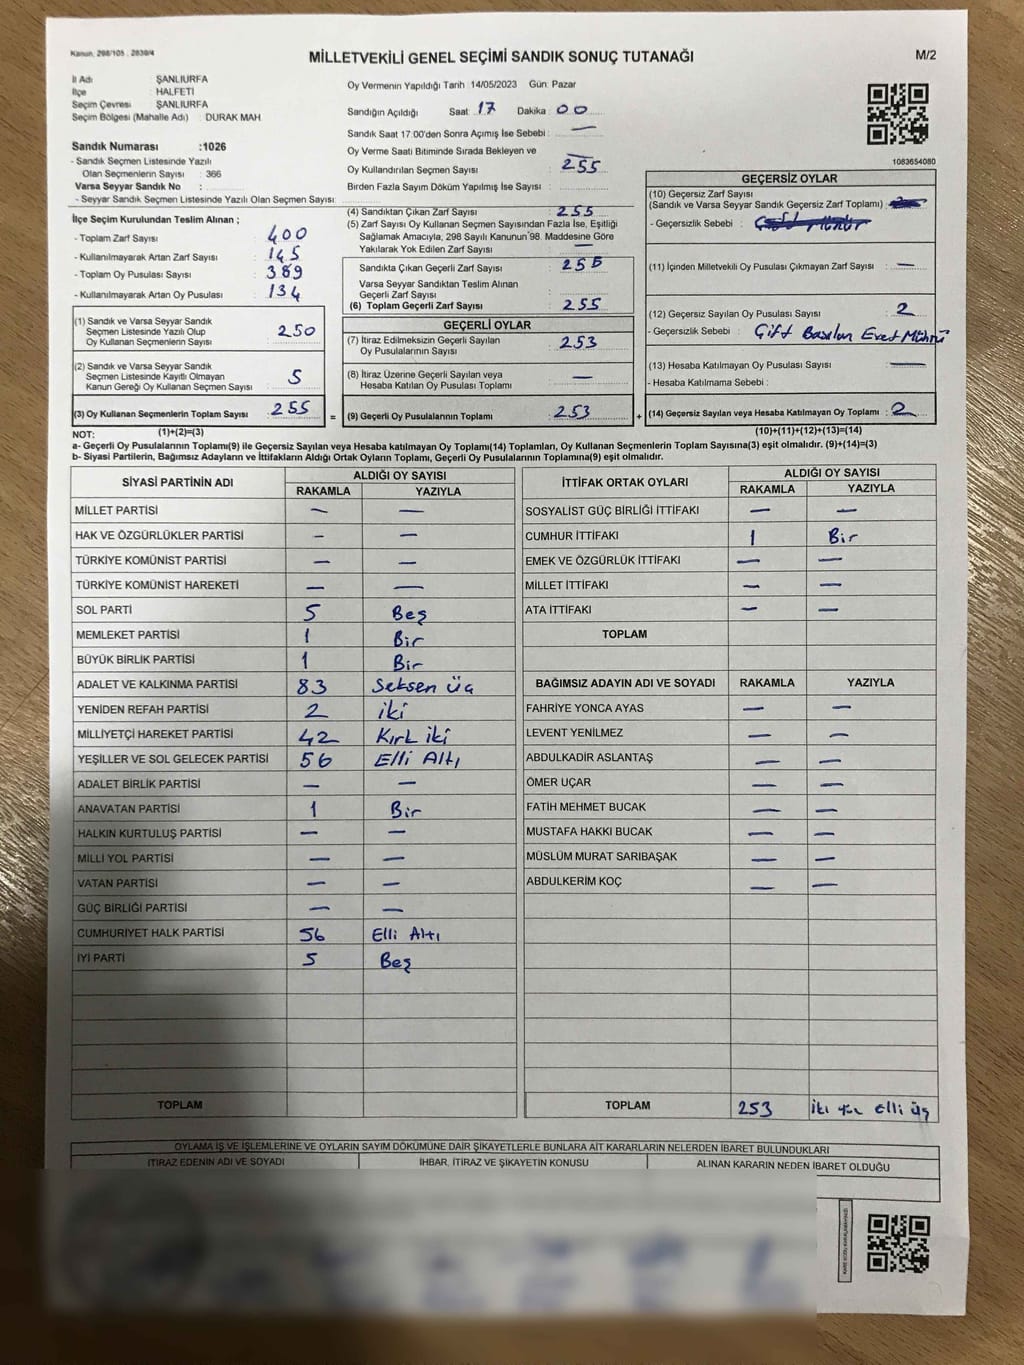 Kanun: 298/105 , 2839/4
MİLLETVEKİLİ GENEL SEÇİMİ SANDIK SONUÇ TUTANAĞI
M/2
İl Adı : ŞANLIURFA
İlçe : HALFETİ
Seçim Çevresi : ŞANLIURFA
Seçim Bölgesi (Mahalle Adı) : DURAK MAH.
Oy Vermenin Yapıldığı Tarih 14/05/2023 Gün: Pazar
Sandığın Açıldığı Saat: 17 Dakika: 00
Sandık Saat 17.00'den Sonra Açımış İse Sebebi : —
Oy Verme Saati Bitiminde Sırada Bekleyen ve
Oy Kullandırılan Seçmen Sayısı : 255
Birden Fazla Sayım Döküm Yapılmış İse Sayısı :
1083654080
Sandık Numarası :1026
- Sandık Seçmen Listesinde Yazılı
Olan Seçmenlerin Sayısı : 366
Varsa Seyyar Sandık No :
- Seyyar Sandık Seçmen Listesinde Yazılı Olan Seçmen Sayısı:
İlçe Seçim Kurulundan Teslim Alınan ;
- Toplam Zarf Sayısı : 400
- Kullanılmayarak Artan Zarf Sayısı : 145
- Toplam Oy Pusulası Sayısı : 389
- Kullanılmayarak Artan Oy Pusulası : 134
(1) Sandık ve Varsa Seyyar Sandık
Seçmen Listesinde Yazılı Olup
Oy Kullanan Seçmenlerin Sayısı : 250
(2) Sandık ve Varsa Seyyar Sandık
Seçmen Listesinde Kayıtlı Olmayan
Kanun Gereği Oy Kullanan Seçmen Sayısı : 5
(3) Oy Kullanan Seçmenlerin Toplam Sayısı : 255
(1)+(2)=(3)
(4) Sandıktan Çıkan Zarf Sayısı : 255
(5) Zarf Sayısı Oy Kullanan Seçmen Sayısından Fazla İse, Eşitliği
Sağlamak Amacıyla, 298 Sayılı Kanunun'98. Maddesine Göre
Yakılarak Yok Edilen Zarf Sayısı : —
Sandıkta Çıkan Geçerli Zarf Sayısı : 255
Varsa Seyyar Sandıktan Teslim Alınan
Geçerli Zarf Sayısı :
(6) Toplam Geçerli Zarf Sayısı : 255
GEÇERLİ OYLAR
(7) İtiraz Edilmeksizin Geçerli Sayılan
Oy Pusulalarının Sayısı : 253
(8) İtiraz Üzerine Geçerli Sayılan veya
Hesaba Katılan Oy Pusulası Toplamı : —
= (9) Geçerli Oy Pusulalarının Toplamı : 253
GEÇERSİZ OYLAR
(10) Geçersiz Zarf Sayısı
(Sandık ve Varsa Seyyar Sandık Geçersiz Zarf Toplamı) :
- Geçersizlik Sebebi :
(11) İçinden Milletvekili Oy Pusulası Çıkmayan Zarf Sayısı : —
(12) Geçersiz Sayılan Oy Pusulası Sayısı : 2
- Geçersizlik Sebebi : Çift Basılan Evet Mührü
(13) Hesaba Katılmayan Oy Pusulası Sayısı : —
- Hesaba Katılmama Sebebi :
+ (14) Geçersiz Sayılan veya Hesaba Katılmayan Oy Toplamı : 2
(10)+(11)+(12)+(13)=(14)
NOT:
a- Geçerli Oy Pusulalarının Toplamı(9) ile Geçersiz Sayılan veya Hesaba katılmayan Oy Toplamı(14) Toplamları, Oy Kullanan Seçmenlerin Toplam Sayısına(3) eşit olmalıdır. (9)+(14)=(3)
b- Siyasi Partilerin, Bağımsız Adayların ve İttifakların Aldığı Ortak Oyların Toplamı, Geçerli Oy Pusulalarının Toplamına(9) eşit olmalıdır.
SİYASİ PARTİNİN ADI
ALDIĞI OY SAYISI
RAKAMLA YAZIYLA
MİLLET PARTİSİ — —
HAK VE ÖZGÜRLÜKLER PARTİSİ — —
TÜRKİYE KOMÜNİST PARTİSİ — —
TÜRKİYE KOMÜNİST HAREKETİ — —
SOL PARTİ 5 Beş
MEMLEKET PARTİSİ 1 Bir
BÜYÜK BİRLİK PARTİSİ 1 Bir
ADALET VE KALKINMA PARTİSİ 83 Seksen üç
YENİDEN REFAH PARTİSİ 2 iki
MİLLİYETÇİ HAREKET PARTİSİ 42 Kırk iki
YEŞİLLER VE SOL GELECEK PARTİSİ 56 Elli Altı
ADALET BİRLİK PARTİSİ — —
ANAVATAN PARTİSİ 1 Bir
HALKIN KURTULUŞ PARTİSİ — —
MİLLİ YOL PARTİSİ — —
VATAN PARTİSİ — —
GÜÇ BİRLİĞİ PARTİSİ — —
CUMHURİYET HALK PARTİSİ 56 Elli Altı
İYİ PARTİ 5 Beş
TOPLAM
İTTİFAK ORTAK OYLARI
ALDIĞI OY SAYISI
RAKAMLA YAZIYLA
SOSYALİST GÜÇ BİRLİĞİ İTTİFAKI — —
CUMHUR İTTİFAKI 1 Bir
EMEK VE ÖZGÜRLÜK İTTİFAKI — —
MİLLET İTTİFAKI — —
ATA İTTİFAKI — —
TOPLAM
BAĞIMSIZ ADAYIN ADI VE SOYADI RAKAMLA YAZIYLA
FAHRİYE YONCA AYAS — —
LEVENT YENİLMEZ — —
ABDULKADİR ASLANTAŞ — —
ÖMER UÇAR — —
FATİH MEHMET BUCAK — —
MUSTAFA HAKKI BUCAK — —
MÜSLÜM MURAT SARIBAŞAK — —
ABDULKERİM KOÇ — —
TOPLAM 253 İki yüz elli üç
OYLAMA İŞ VE İŞLEMLERİNE VE OYLARIN SAYIM DÖKÜMÜNE DAİR ŞİKAYETLERLE BUNLARA AİT KARARLARIN NELERDEN İBARET BULUNDUKLARI
İTİRAZ EDENİN ADI VE SOYADI
İHBAR, İTİRAZ VE ŞİKAYETİN KONUSU
ALINAN KARARIN NEDEN İBARET OLDUĞU